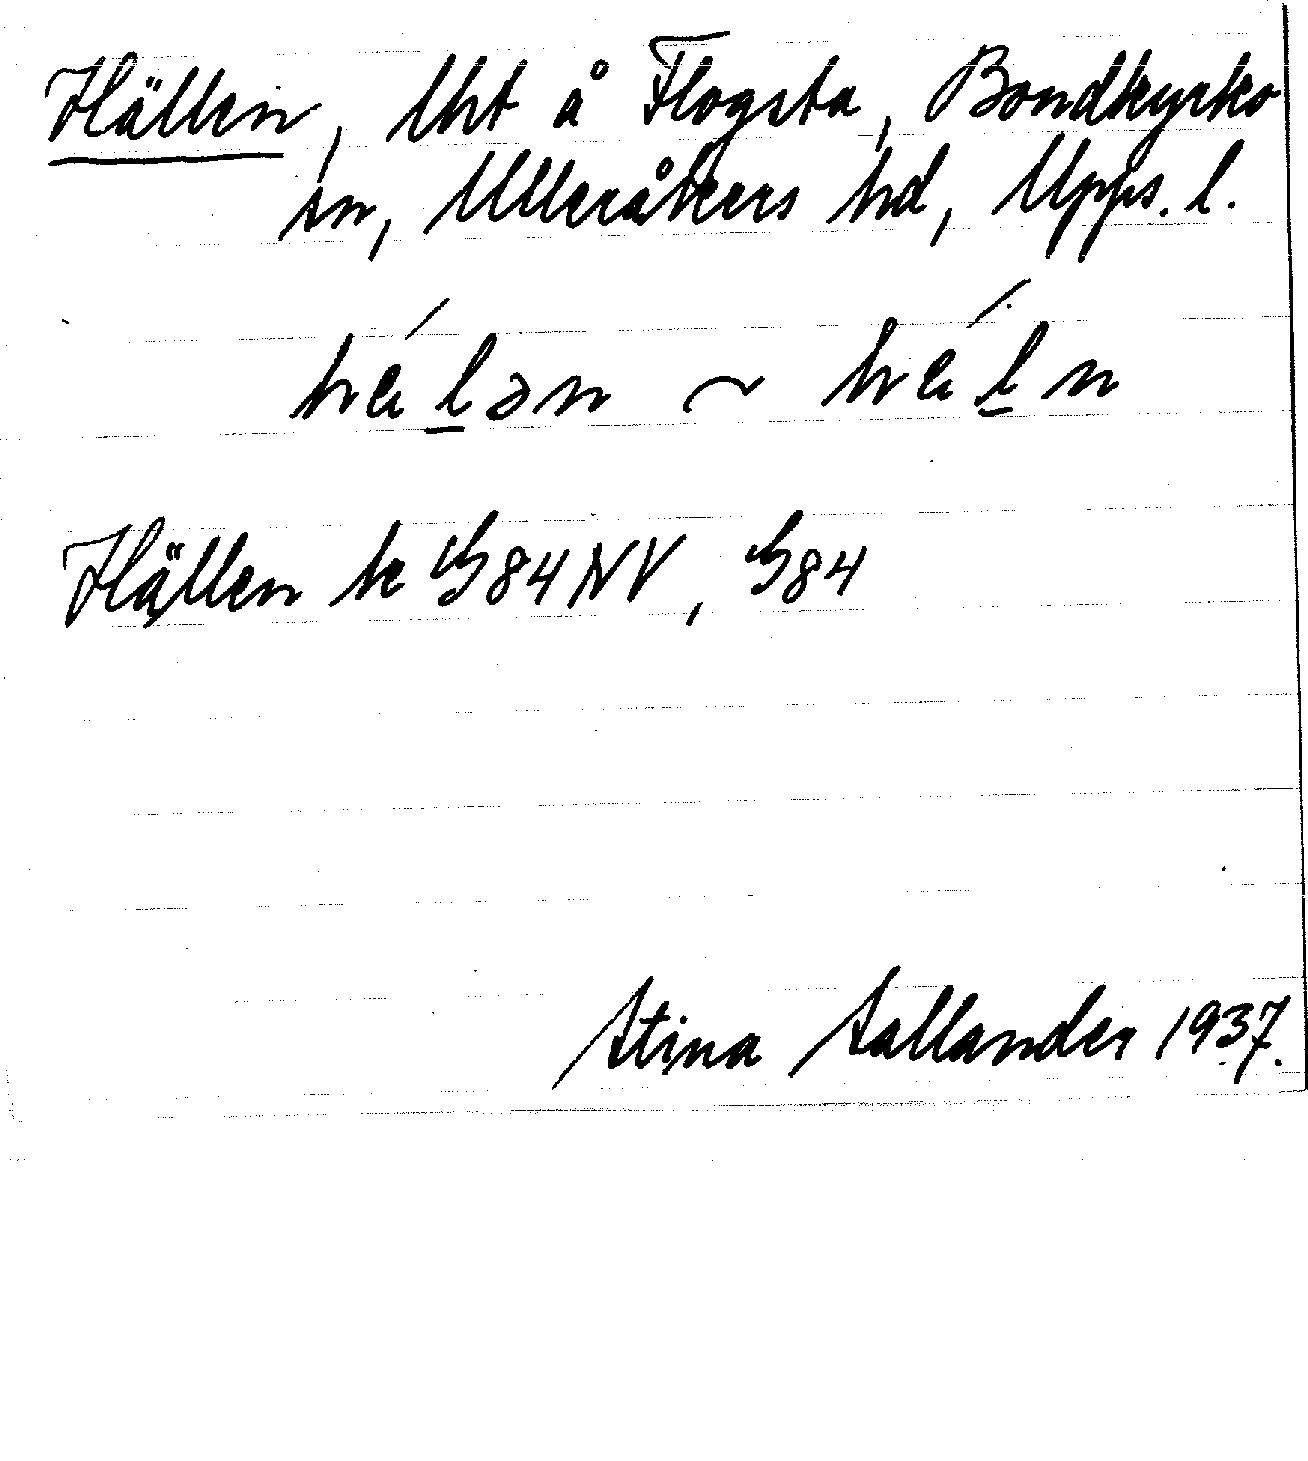 Hällen, lht å Flogsta, Bondkyrko
sn, Ulleråkers hd, Upps. l.
hä́l̲ən ~ hä́l̲n
Hällen k G84NV, G84
Stina Sallander 1937.